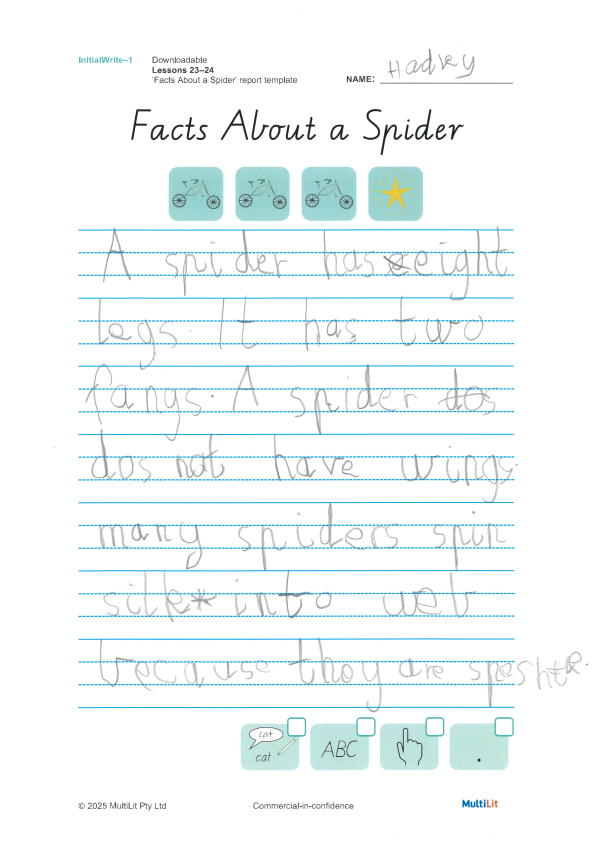 InitialWrite–1
Downloadable
Lessons 23–24
'Facts About a Spider' report template
NAME: Hadvey
Facts About a Spider
A spider has eight
legs. It has two
fangs. A spider dos
dos not have wings.
many spiders spin
silk * into web
because they are speshte.
cat
cat
ABC
.
© 2025 MultiLit Pty Ltd
Commercial-in-confidence
MultiLit